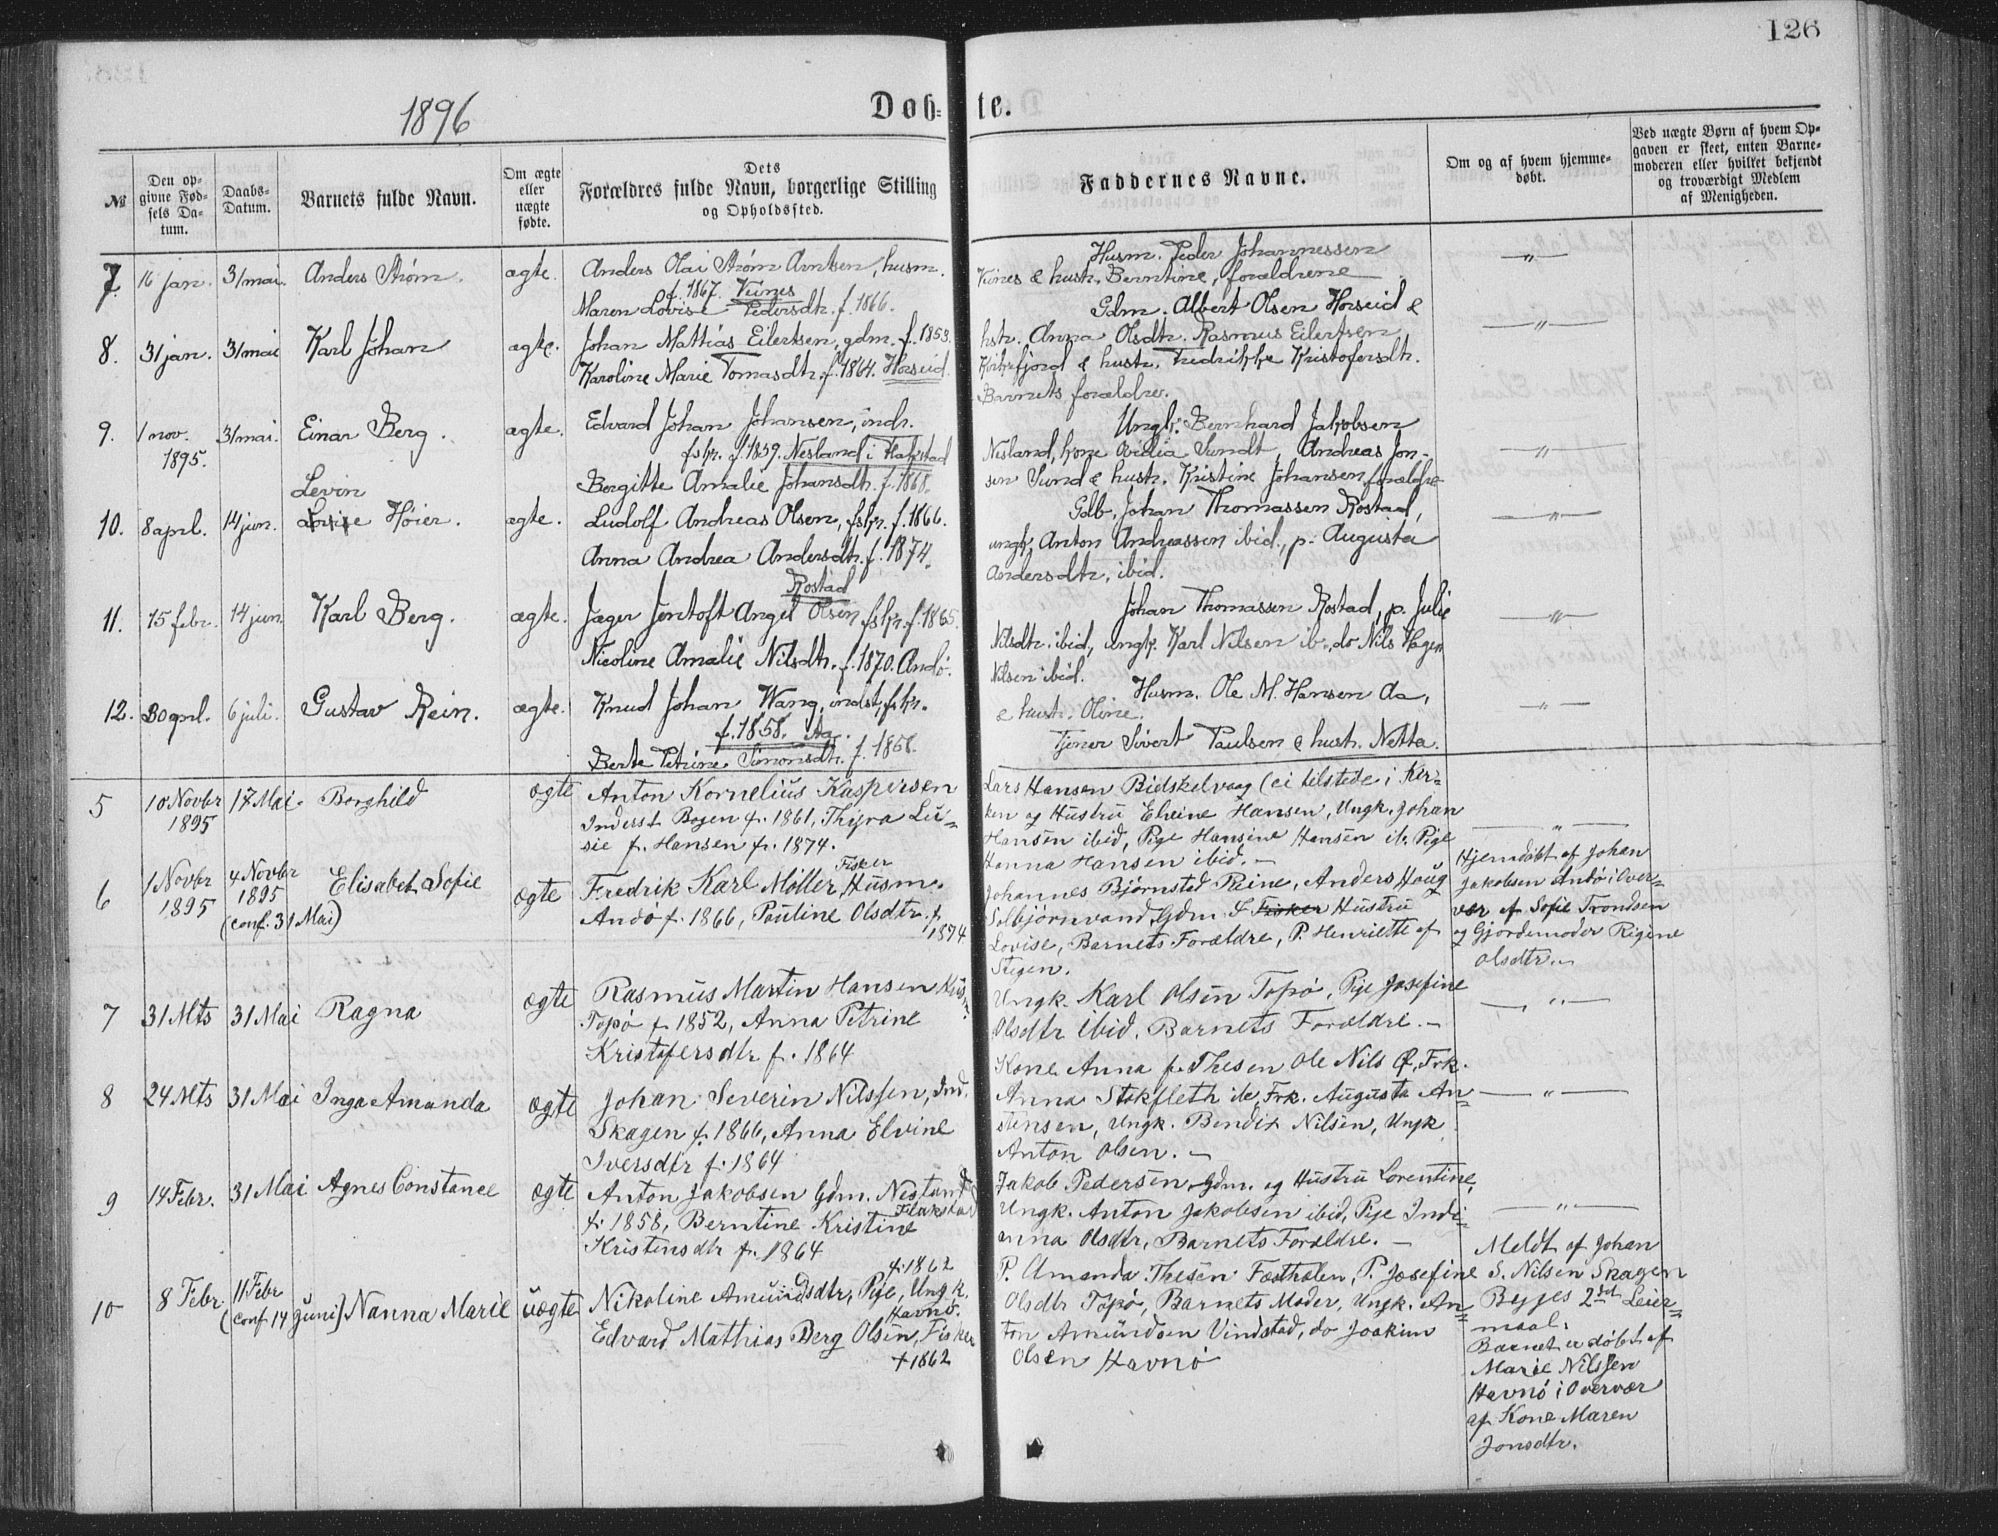 126
1896
Døb= te.
№
Den op-
givne Fød-
sels Da-
tum.
Daabs-
Datum.
Barnets fulde Navn.
Om ægte
eller
uægte
fødte.
Dets
Forældres fulde Navn, borgerlige Stilling
og Opholdssted.
Faddernes Navne.
Om og af hvem hjemme-
døbt.
Ved uægte Børn af hvem Op-
gaven er skeet, enten Barne-
moderen eller hvilket bekjendt
og troværdigt Medlem
af Menigheden.
7. 16 jan. 31 mai. Anders Strøm. ægte.
Anders Olai Strøm Arntsen, husm.
f. 1867. Kvines
Maren Lovise Pedersdtr. f. 1866.
Husm. Peder Johannessen
Kvines & hustr. Berntine, forældrene
—"—
8. 31 jan. 31 mai Karl Johan ægte.
Johan Mattias Eilertsen, gdm. f. 1853.
Karoline Marie Tomasdtr. f. 1864. Horseid.
Gdm. Albert Olsen Horseid &
hstr. Anna Olsdtr. Rasmus Eilertsen
Kirkefjord & hustr. Fredrikke Kristofersdtr.
Barnets forældre.
—"—
9. 1 nov. 31 mai. Einar Berg. ægte.
1895.
Edvard Johan Johansen, indr.
fskr. f. 1859. Nesland i Flakstad
Bergitte Amalie Johansdtr. f. 1868.
Ungk. Bernhard Jakobsen
Nesland, kone Sundt, Andreas Jon-
sen Sund & hustr. Kristine Johansen, forældre
—"—
Levin
10. 8 apl. 14 jun. Lovise Høier. ægte.
Ludolf Andreas Olsen, fskr. f. 1866.
Anna Andrea Andersdtr. f. 1874.
Rostad
Gdb. Johan Thomassen Rostad,
ungk. Anton Andreassen ibid., p. Augusta
Andersdtr. ibid.
—"—
11. 15 febr. 14 jun. Karl Berg. ægte.
Jæger Jentoft Angel Olsen fskr. f. 1865.
Nicoline Amalie Nilsdtr. f. 1870. Andø.
Johan Thomassen Rostad, p. Julie
Nilsdtr. ibid, ungk. Karl Nilsen ib., do Nils Hagen
Nilsen ibid.
—"—
12. 30 apl. 6 juli. Gustav Rein. ægte.
Knud Johan Wang, indst, fskr.
f. 1858. Aa.
Berte Petrine Simonsdtr. f. 1858.
Husm. Ole M. Hansen Aa,
& hustr. Oline.
Tjener Sivert Paulsen & hustr. Netta.
—"—
5 10 Novbr 17 Mai. Borghild ægte
1895
Anton Kornelius Kaspersen
Inderst Bogen f. 1861, Thyra Lu=
sie f. Hansen f. 1874.
Lars Hansen Bidskelvaag (ei tilstede i Kir-
ken og Hustru Elreine Hansen, Ungk. Johan
Hansen ibid, Pige Hansine Hansen ib. Pige
Hanna Hansen ibid. –
—"—
6 1 Novbr 4 Novbr Elisabet Sofie ægte
1895 1895
(conf. 31 Mai)
Fisker
Fredrik Karl Möller Husm.
Andø f. 1866, Pauline Olsdtr. f.
1874.
Johannes Bjørnsted Reine, Anders Houg
Selbjørnvand, Gdm. & Fisker Hustru
Lovise, Barnets Forældre, P. Henriette af
Stegen.
Hjemdøbt af Johan
Jakobsen Andø i Over-
vær af Sofie Trondsen
og Gjordemoder Regine
Olsdtr.
7 31 Mts 31 Mai Ragna ægte
Rasmus Martin Hansen
Topø f. 1852, Anna Petrine
Kristofersdtr f. 1864
Ungk. Karl Olsen Topø, Pige Josefine
Olsdtr ibid. Barnets Forældre. –
—"—
8 24 Mts 31 Mai Inga Amanda ægte
Johan Severin Nilssen, Ind.
Skagen f. 1866, Anna Elvine
Iversdtr f. 1864
Kone Anna f. Thesen Ole Nils Ø, Frk.
Anna Stokfleth ib, Frk. Augusta An-
stensen, Ungk. Bendix Nilsen, Ungk.
Anton Olsen. –
—"—
9 14 Febr. 31 Mai Agnes Constance ægte
Anton Jakobsen Gdm. Nesland
Flakstad
f. 1858, Berntine Kristine
Kristensdtr f. 1864
Jakob Pedersen, Gdm. og Hustru Lorentine,
Ungk. Anton Jakobsen ibid, Pige Indi-
anna Olsdtr, Barnets Forældre. –
—"—
10 8 Febr. 11 Febr
(conf. 14 Juni) Nanna Marie uægte
f. 1862
Nikoline Amundsdtr, Pige, Ungk.
Havnø.
Edvard Mathias Berg Olsen, Fisker
f 1862
P. Amanda Thesen Fæsthælen, P. Josefine
Olsdtr Topø, Barnets Moder, Ungk. An-
ton Amundsen Vindstad, do Joakim
Olsen Havnø
Meldt af Johan
S. Nilsen Skagen
Begges 2det Leier-
maal.
Barnet er døbt af
Marie Nilssen
Havnø i Overvær
af Kone Maren
Jonsdtr.